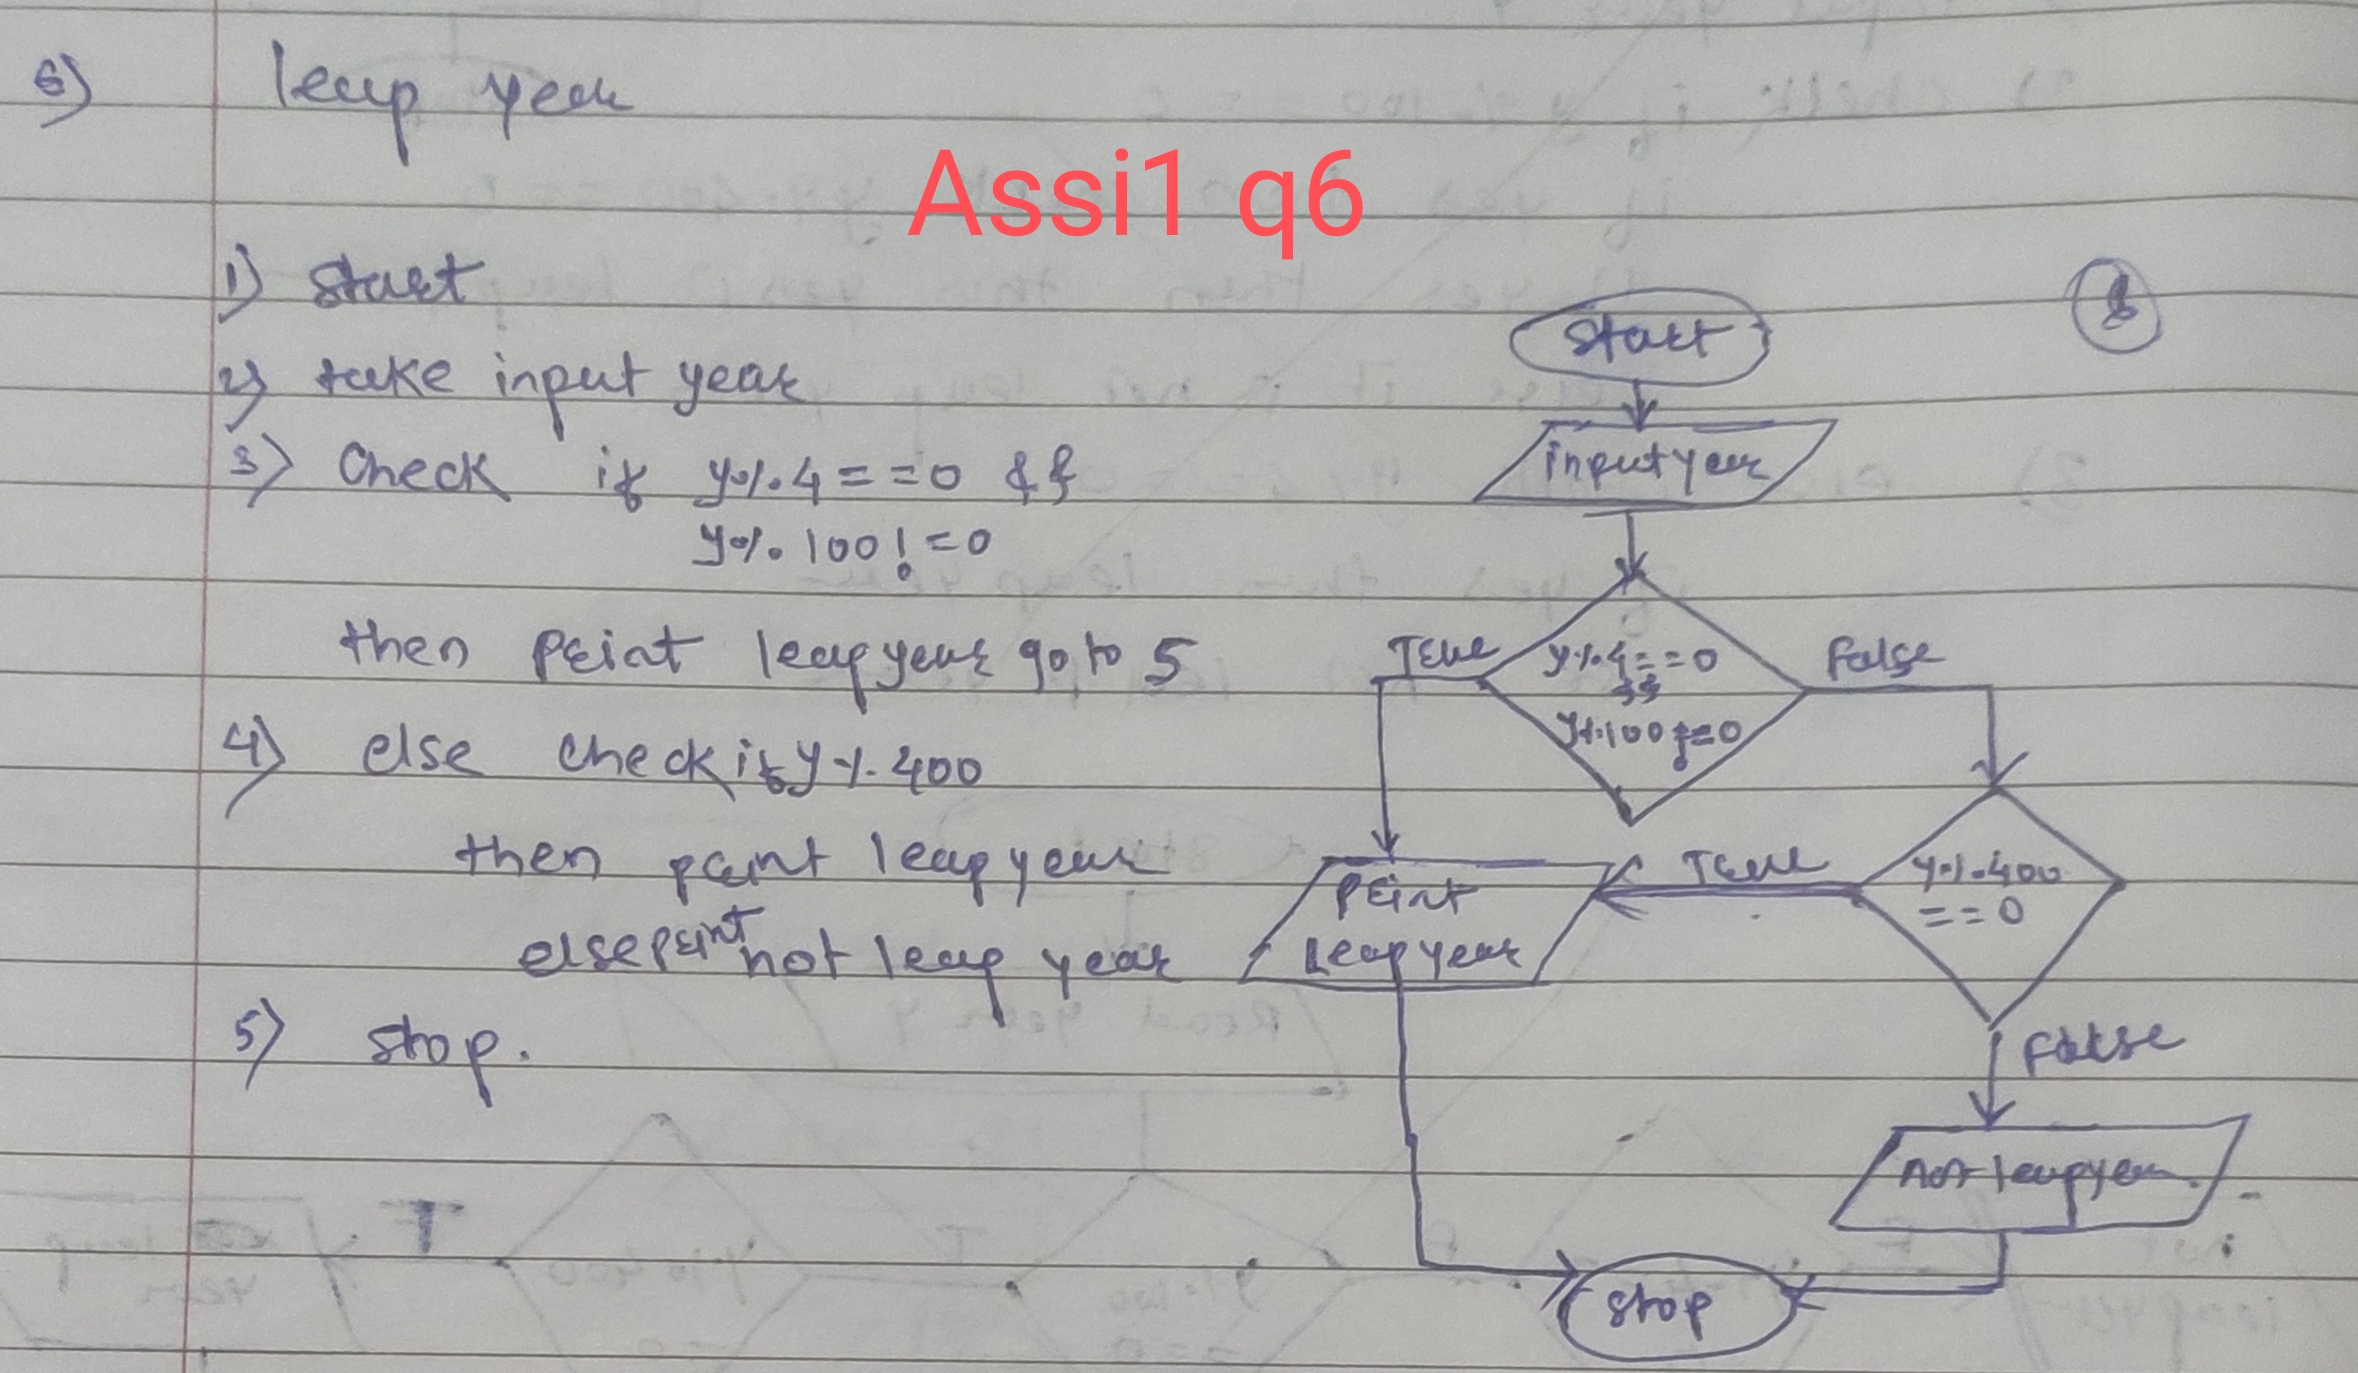 6) leap year
Assi1 q6
1) Start
2) take input year
3) Check if y%4 = =0 &&
y%100!=0
then print leap year go to 5
4) else check if y%400
then print leap year
else print not leap year
5) stop.
Start
input year
True
y%4==0
&&
y%100!=0
False
True
y%400
==0
Print
Leap year
False
not leap year
stop